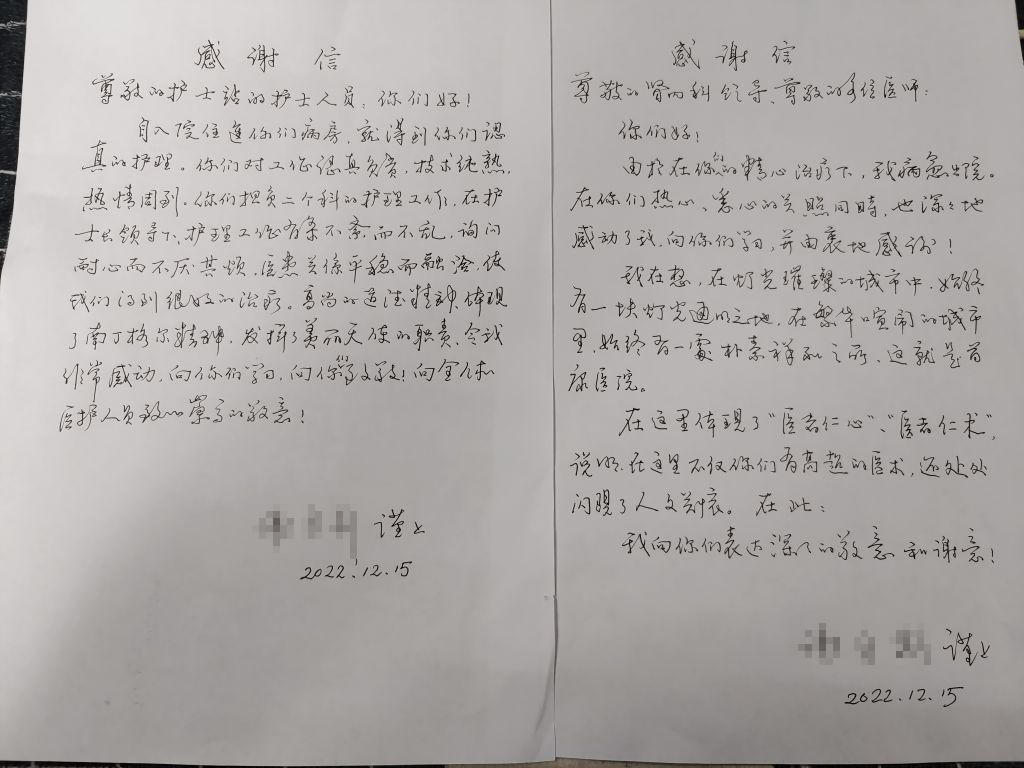 感谢信
尊敬的护士站的护士人员：你们好！
自入院住进你们病房，就得到你们認
真的护理。你们对工作认真负责，技术纯熟，
热情周到。你们担负二个科的护理工作，在护
士长领导下，护理工作有条不紊而不乱，询问
耐心而不厌其烦，医患关係平稳而融洽，使
我们得到很好的治疗。高尚的道德精神，体现
了南丁格尔精神，发揮了美丽天使的职责，令我
非常感动，向你们学习，向你们致敬！向全体
医护人员致以崇高的敬意！
谨上
2022.12.15
感谢信
尊敬的肾内科领导、尊敬的各位医师：
你们好！
由於在你们的精心治疗下，我病愈出院。
在你们热心、悉心的关照同時，也深々地
感动了我，向你们学习，并由衷地感谢！
我在想，在灯光璀璨的城市中，始终
有一块灯光通明之地，在繁华喧闹的城市
里，始终有一處朴素祥和之所，这就是首
康医院。
在这里体现了“医者仁心”、“医者仁术”，
说明，在这里不仅你们有高超的医术，还处处
闪現了人文关怀。 在此：
我向你们表达深々的敬意和谢意！
谨上
2022.12.15